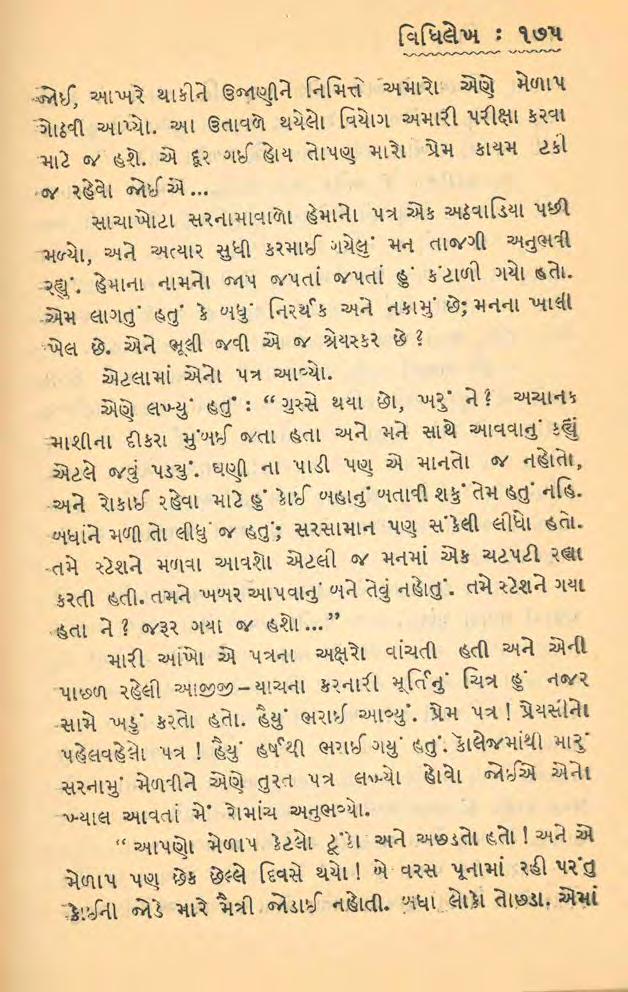 વિધિલેખ : ૧૭૫
જોઈ, આખરે થાકીને ઉજાણીને નિમિત્તે અમારો એણે મેળાપ
ગોઠવી આપ્યો. આ ઉતાવળે થયેલો વિયોગ અમારી પરીક્ષા કરવા
માટે જ હશે. એ દૂર ગઈ હોય તોપણ મારો પ્રેમ કાયમ ટકી
જ રહેવો જોઈએ...
સાચાખોટા સરનામાવાળો હેમાનો પત્ર એક અઠવાડિયા પછી
મળ્યો, અને અત્યાર સુધી કરમાઈ ગયેલું મન તાજગી અનુભવી
રહ્યું. હેમાના નામનો જાપ જપતાં જપતાં હું કંટાળી ગયો હતો.
એમ લાગતું હતું કે બધું નિરર્થક અને નકામું છે; મનના ખાલી
ખેલ છે. એને ભૂલી જવી એ જ શ્રેયસ્કર છે ?
એટલામાં એનો પત્ર આવ્યો.
એણે લખ્યું હતું : “ ગુસ્સે થયા છો, ખરું ને ? અચાનક
માશીના દીકરા મુંબઈ જતા હતા અને મને સાથે આવવાનું કહ્યું
એટલે જવું પડયું. ઘણી ના પાડી પણ એ માનતો જ નહોતો,
અને રોકાઈ રહેવા માટે હું કોઈ બહાનું બતાવી શકું તેમ હતું નહિ.
બધાંને મળી તો લીધું જ હતું; સરસામાન પણ સંકેલી લીધો હતો.
તમે સ્ટેશને મળવા આવશો એટલી જ મનમાં એક ચટપટી રહ્યા
કરતી હતી. તમને ખબર આપવાનું બને તેવું નહોતું. તમે સ્ટેશને ગયા
હતા ને ? જરૂર ગયા જ હશો...”
મારી આંખો એ પત્રના અક્ષરો વાંચતી હતી અને એની
પાછળ રહેલી આજીજી-યાચના કરનારી મૂર્તિનું ચિત્ર હું નજર
સામે ખડું કરતો હતો. હૈયું ભરાઈ આવ્યું. પ્રેમ પત્ર ! પ્રેયસીનો
પહેલવહેલો પત્ર ! હૈયું હર્ષથી ભરાઈ ગયું હતું. કૉલેજમાંથી મારું
સરનામું મેળવીને એણે તુરત પત્ર લખ્યો હોવો જોઈએ એનો
ખ્યાલ આવતાં મેં રોમાંચ અનુભવ્યો.
“ આપણો મેળાપ કેટલો ટૂંકો અને અછડતો હતો ! અને એ
મેળાપ પણ છેક છેલ્લે દિવસે થયો ! બે વરસ પૂનામાં રહી પરંતુ
કોઈની જોડે મારે મૈત્રી જોડાઈ નહોતી. બધા લોકો તોછડા. એમાં